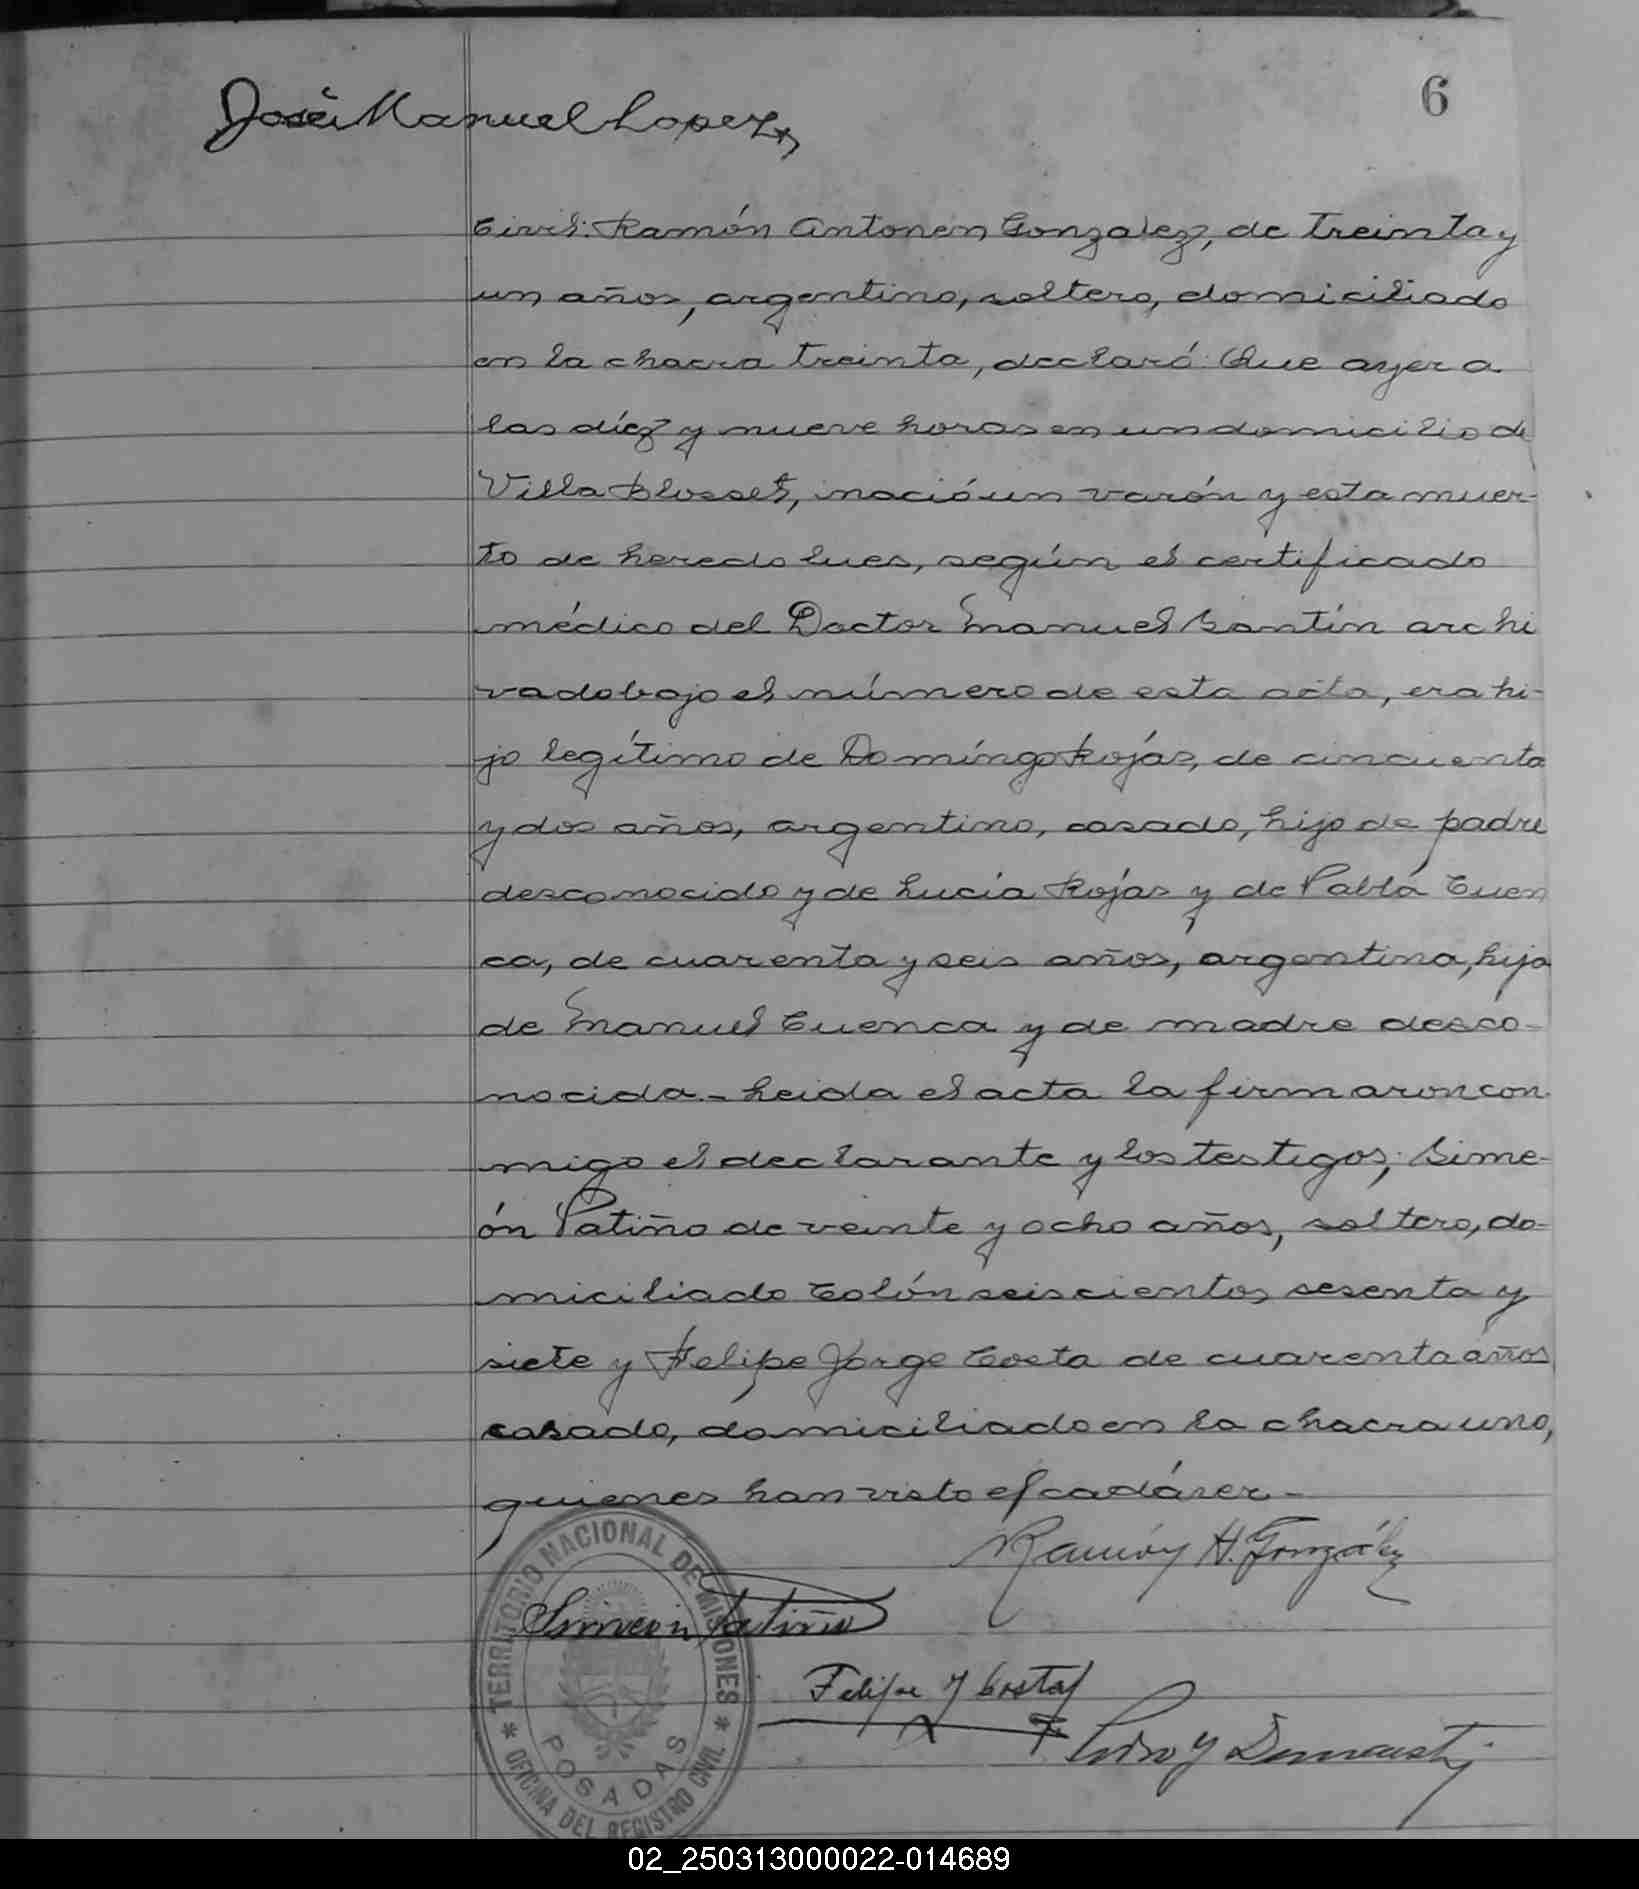 6
José Manuel Lopez,
Civil: Ramón Antonen Gonzalez, de treinta y
un años, argentino, soltero, domiciliado
en la chacra treinta, declaró: Que ayer a
las díez y nueve horas en un domicilio de
Villa Blosset, nació un varón y esta muer-
to de heredo lues, según el certificado
médico del Doctor Manuel Santín archi
vado bajo el número de esta acta, era hi-
jo legítimo de Domíngo Rojás, de cincuenta
y dos años, argentino, casado, hijo de padre
desconocido y de Lucía Rojas y de Pabla Cuen
ca, de cuarenta y seis años, argentina, hija
de Manuel Cuenca y de madre desco-
nocida.- Leida el acta la firmaron con
migo el declarante y los testigos; Sime-
ón Patiño de veinte y ocho años, soltero, do-
miciliado Colón seiscientos sesenta y
siete y Felipe Jorge Costa de cuarenta años
casado, domiciliado en la chacra uno,
quienes han visto el cadáver.-
Ramón H. González
Simeon Patiño
Felipe J Costa
Pedro J
TERRITORIO NACIONAL DE MISIONES
POSADAS
OFICINA DEL REGISTRO CIVIL
02_250313000022-014689